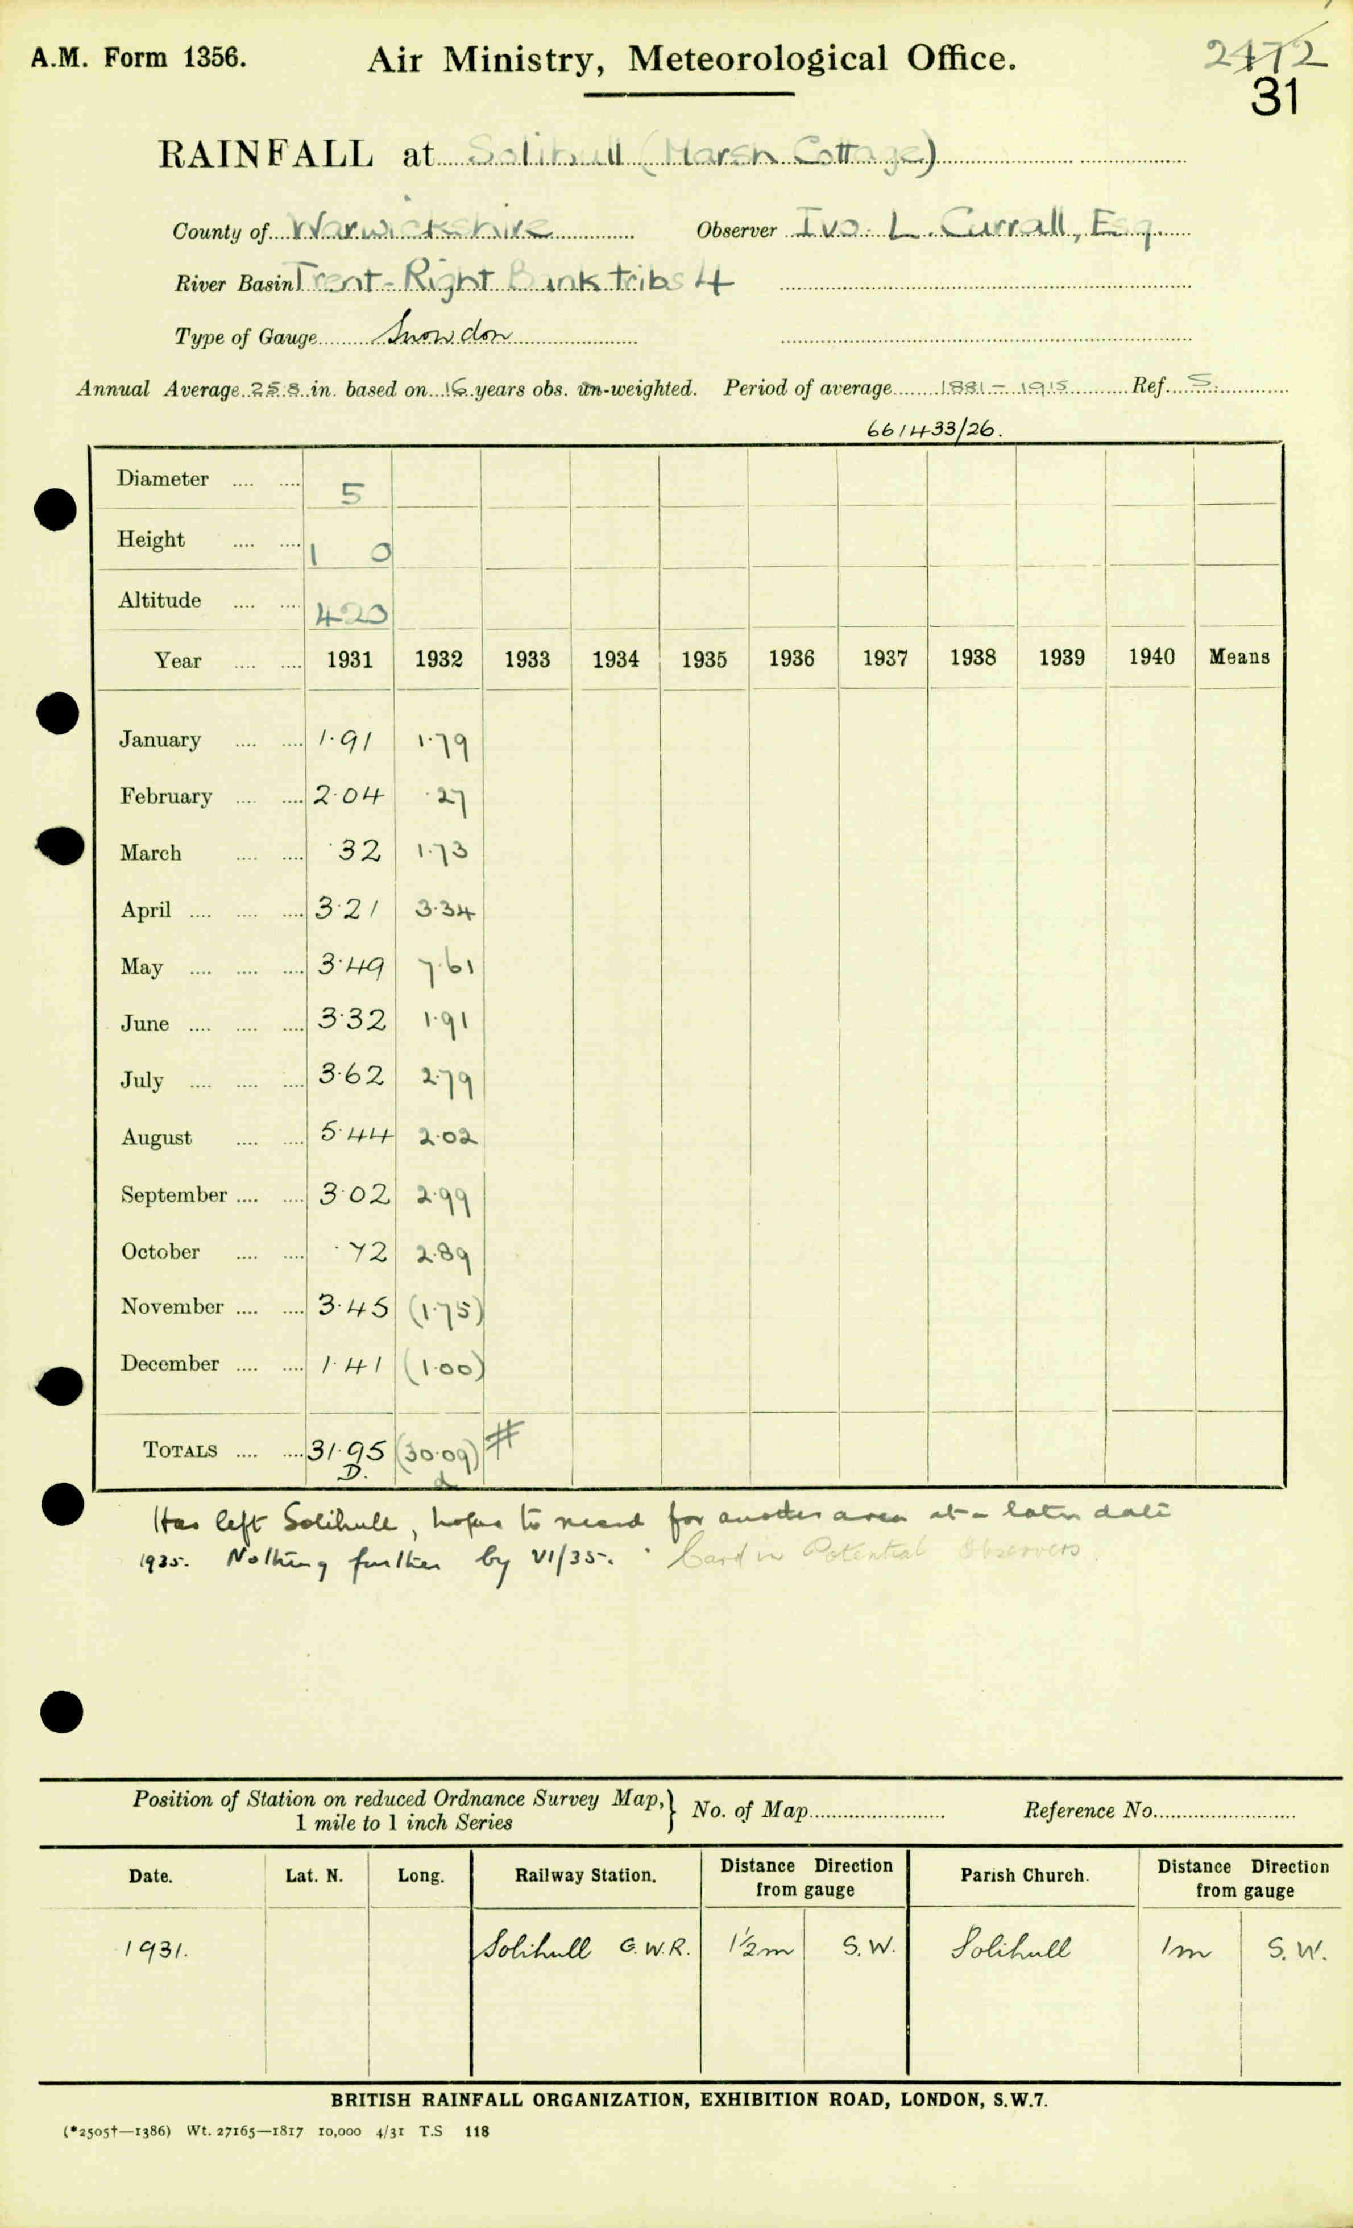 A.M. Form 1356. Air Ministry, Meteorological Office. 2472
31
RAINFALL at Solihull (Marsh Cottage)
County of Warwickshire Observer Ivo. L. Currall, Esq.
River Basin Trent - Right Bank tribs 4
Type of Gauge Snowdon
Annual Average 25.8 in. based on 16 years obs. un-weighted. Period of average 1881 - 1915 Ref. S.
661433/26.
Diameter .... .... 5
Height .... .... 1 0
Altitude .... .... 420
Year .... .... 1931 1932 1933 1934 1935 1936 1937 1938 1939 1940 Means
January .... .... 1.91 1.79
February .... .... 2.04 .27
March .... .... .32 1.73
April .... .... .... 3.21 3.34
May .... .... .... 3.49 7.61
June .... .... .... 3.32 1.91
July .... .... .... 3.62 2.79
August .... .... 5.44 2.02
September .... .... 3.02 2.99
October .... .... .72 2.89
November .... .... 3.45 (1.75)
December .... .... 1.41 (1.00)
TOTALS .... .... 31.95 (30.09) #
D. d
Has left Solihull, hopes to record for another area at a later date
1935. Nothing further by VI/35. Card in Potential Observers
Position of Station on reduced Ordnance Survey Map, } No. of Map Reference No.
1 mile to 1 inch Series
Date. Lat. N. Long. Railway Station. Distance Direction from gauge Parish Church. Distance Direction from gauge
1931. Solihull G.W.R. 1½m S.W. Solihull 1m S.W.
BRITISH RAINFALL ORGANIZATION, EXHIBITION ROAD, LONDON, S.W.7.
(*2505†—1386) Wt. 27165—1817 10,000 4/31 T.S 118